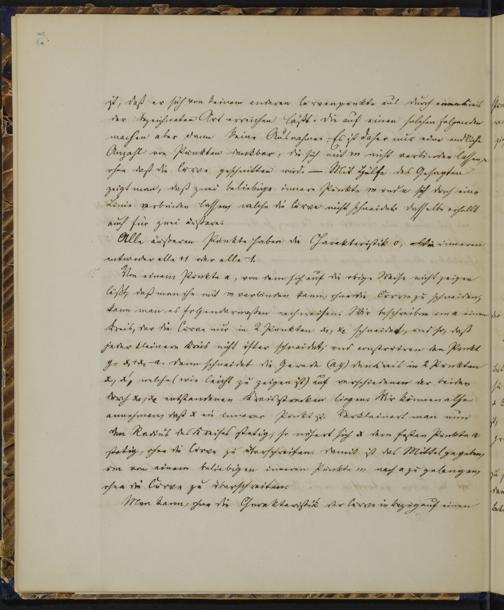 ist, daß er sich von keinem anderen Curvenpunkte aus durch
der bezeichneten Art erreichen läßt. Die auf einen solchen folgenden
machen aber dann keine Ausnahme. Es ist daher nur eine endliche
Anzahl von Punkten denkbar, die sich mit m nicht verbinden lassen,
ohne daß die Curve geschnitten wird. — Mit Hülfe des Gesagten
zeigt man, daß zwei beliebige innere Punkte m und n sich durch eine
Linie verbinden lassen, welche die Curve nicht schneidet. Dasselbe erhellt
auch für zwei äußere.
Alle äußeren Punkte haben die Charakteristik 0, die inneren
entweder alle +1 oder alle -1.
Um einem Punkte a, von dem sich auf die obige Weise nicht zeigen
läßt, daß man ihn mit m verbinden kann, ohne die Curve zu schneiden,
kann man es folgendermaßen nachweisen. Wir beschreiben um a einen
Kreis, der die Curve nur in 2 Punkten schneidet, und so, daß
jeder kleinere Kreis nicht öfter schneidet, und construiren den Punkt
Dann schneidet die Gerade (ay) den Kreis in 2 Punkten
x, x', welche (wie leicht zu zeigen ist) auf verschiedenen der beiden
durch entstandenen Kreisstrecken liegen. Wir können also
annehmen, daß x ein innerer Punkt ist. Verkleinert man nun
den Radius des Kreises stetig, so nähert sich x dem festen Punkte a
stetig, ohne die Curve zu überschreiten. Damit ist das Mittel gegeben,
um von einem beliebigen inneren Punkte m nach a zu gelangen,
ohne die Curve zu überschreiten.
Man kann, ohne die Charakteristik der Curve in bezug auf einen